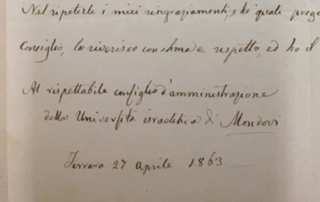 Nel ripeterle i miei ringraziamenti, e de' quali prego
Consiglio, la riverisco con stima e rispetto, ed ho il
Al rispettabile consiglio d'amministrazione
della Università israelitica di Mondovì
Ferrara 27 aprile 1863